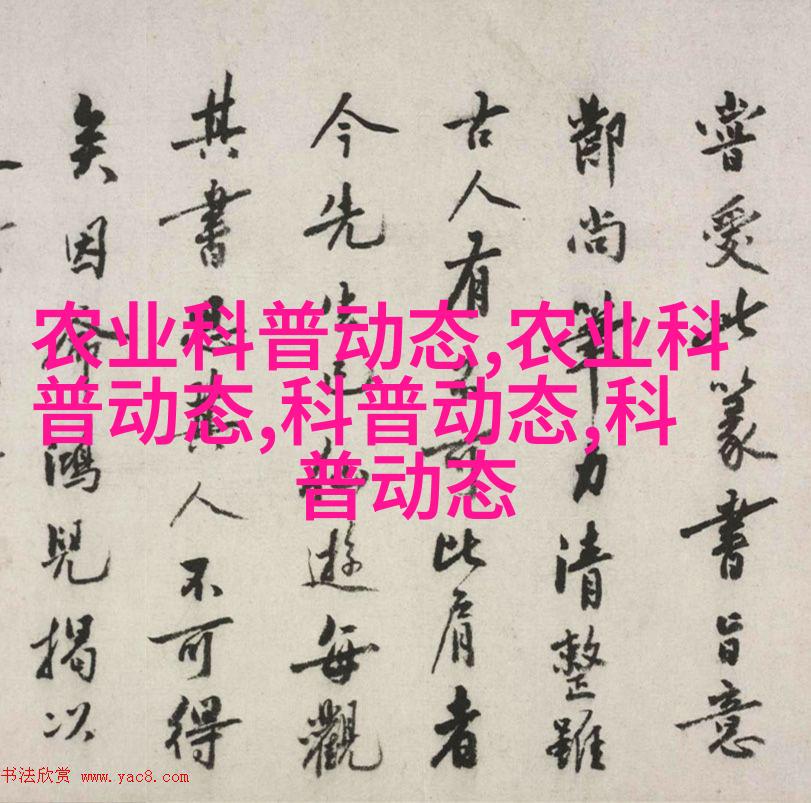 农业科普动态,农业科
普动态,科普动态,科
普动态
嘗受此篆書旨意
尚筆力清整雖
古人有不可比肩者
今先生已遊每觀
其書思其人不可得
矣因鴻兒揭以
书法欣赏 www.yac8.com